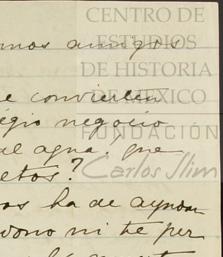 CENTRO DE
ESTUDIOS
DE HISTORIA
DE MÉXICO
FUNDACIÓN
Carlos Slim
mos amigos
e convierten
égio negocio
al agua, que
etos?
os ha de ayudar
dono ni te per